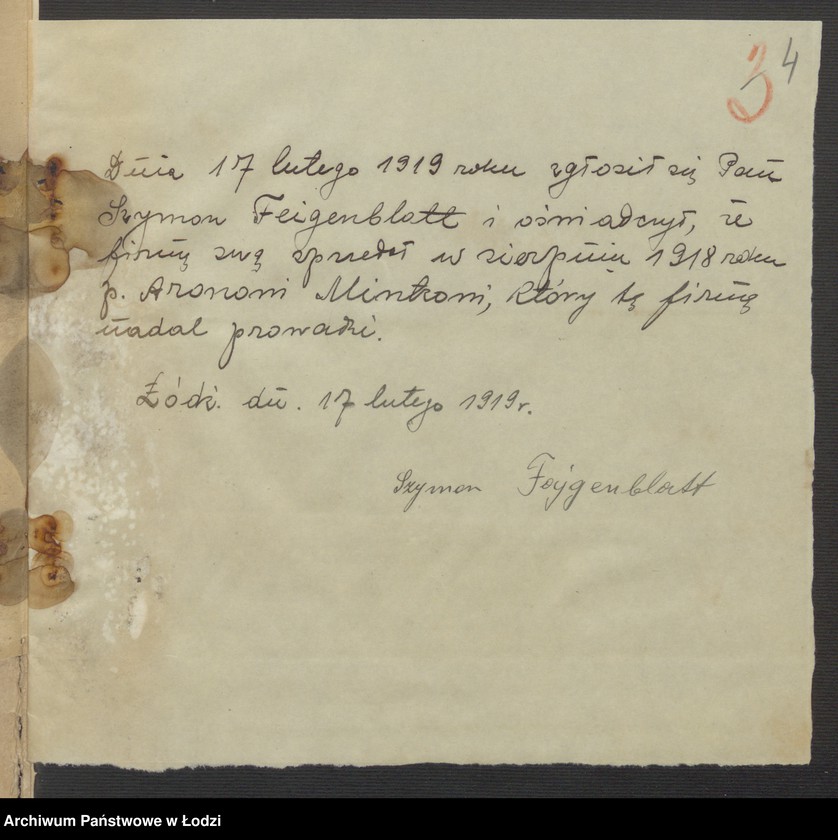 3 4
Dnia 17 lutego 1919 roku zgłosił się Pan
Szymon Feigenblatt i oświadczył, że
firmę swą sprzedał w sierpniu 1918 roku
p. Aronowi Mintzowi, który tę firmę
nadal prowadzi.
Łódź. dn. 17 lutego 1919 r.
Szymon Fajgenblatt
Archiwum Państwowe w Łodzi